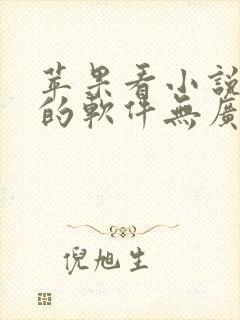 苹果看小說
的軟件無廣
倪旭生